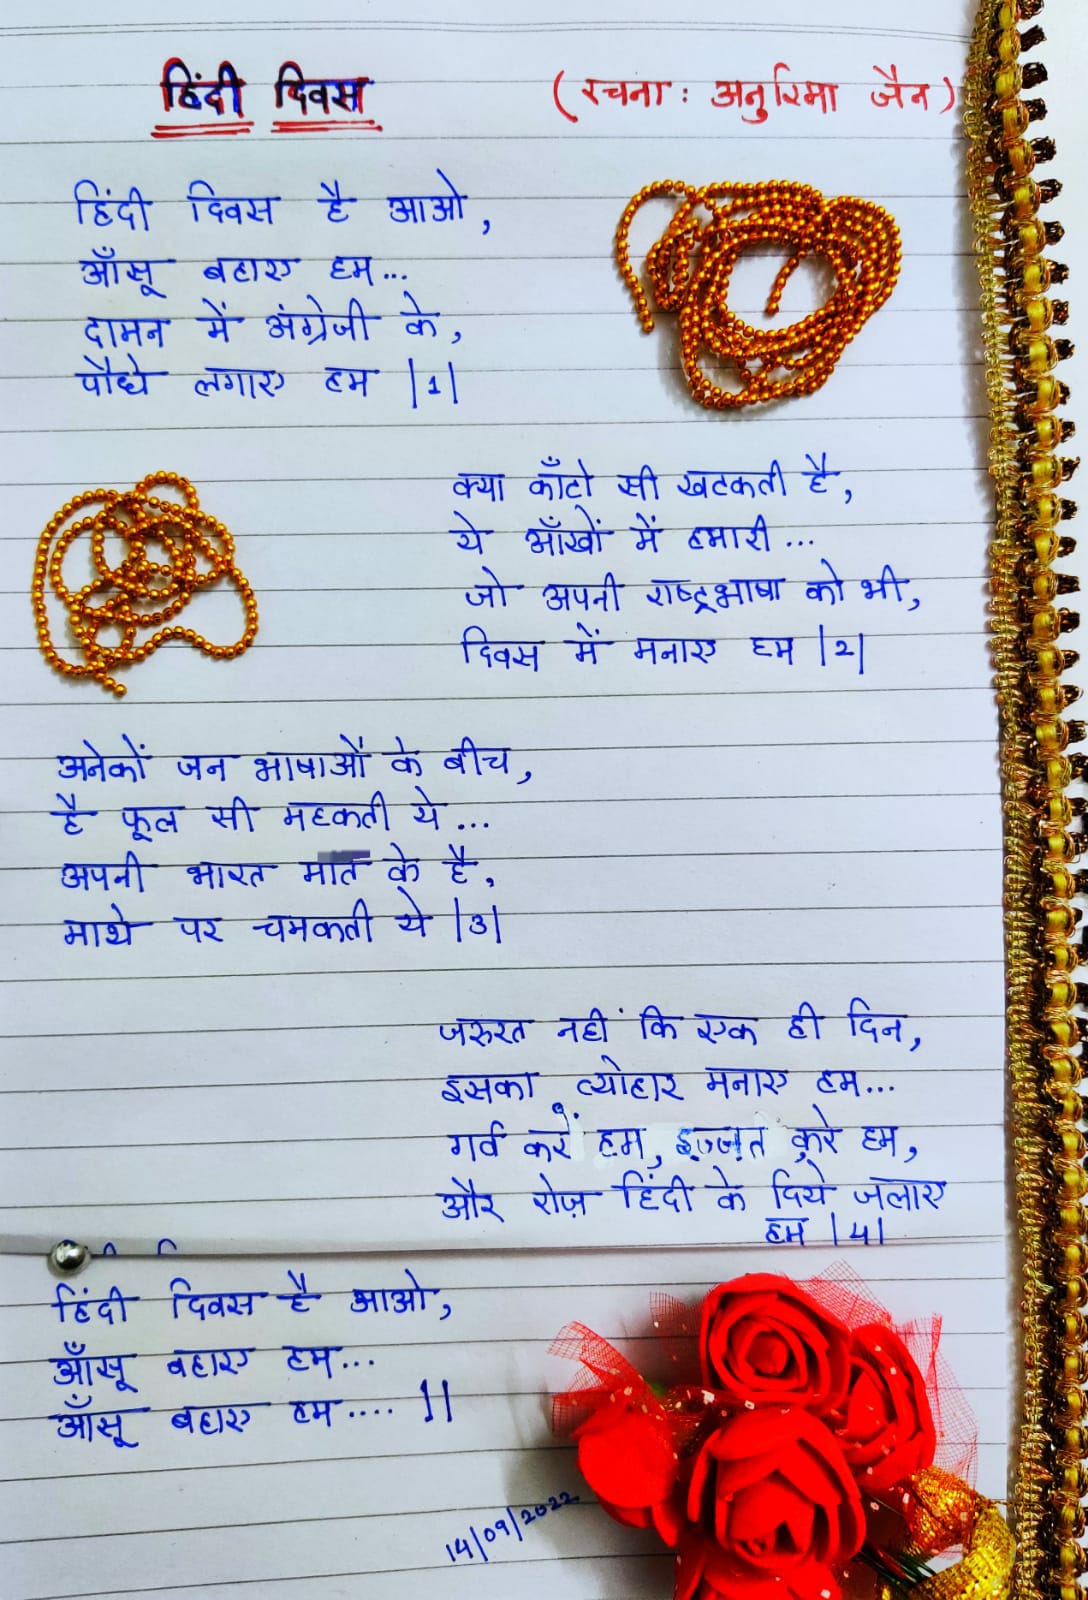 हिंदी दिवस (रचना: अनुरिमा जैन)
हिंदी दिवस है आओ,
आँसू बहाए हम...
दामन में अंग्रेजी के,
पौधे लगाए हम |1|
क्या काँटो सी खटकती है,
ये आँखों में हमारी...
जो अपनी राष्ट्रभाषा को भी,
दिवस में मनाए हम |2|
अनेकों जन भाषाओं के बीच,
है फूल सी महकती ये...
अपनी भारत मात के है,
माथे पर चमकती ये |3|
जरुरत नहीं कि एक ही दिन,
इसका त्योहार मनाए हम...
गर्व करें हम, इज़्ज़त करे हम,
और रोज़ हिंदी के दिये जलाए
हम |4|
हिंदी दिवस है आओ,
आँसू बहाए हम...
आँसू बहाए हम.... ||
14/09/2022